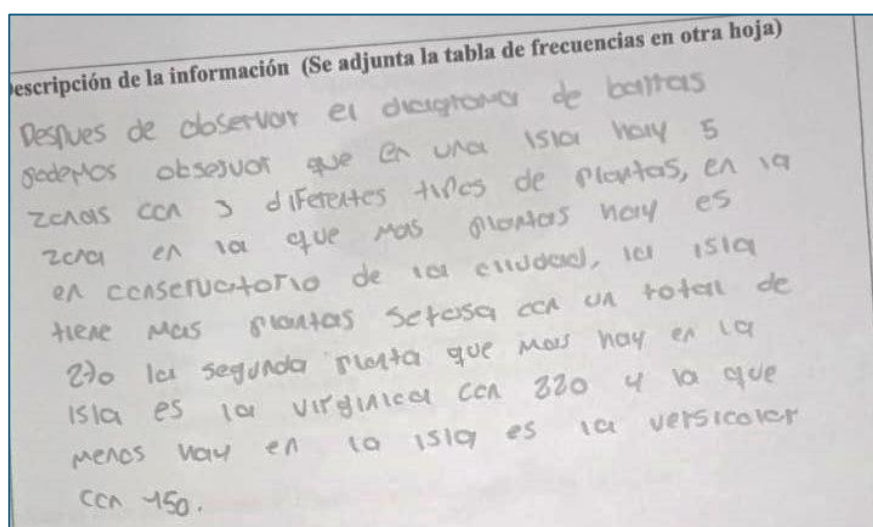 escripción de la información (Se adjunta la tabla de frecuencias en otra hoja)
Despues de observar el diagrama de barras
podemos observar que en una isla hay 5
zonas con 3 diferentes tipos de plantas, en la
zona en la que mas plantas hay es
en conservatorio de la ciudad, la isla
tiene mas plantas setosa con un total de
270 la segunda planta que mas hay en la
isla es la virginica con 220 y la que
menos hay en la isla es la versicolor
con 150.